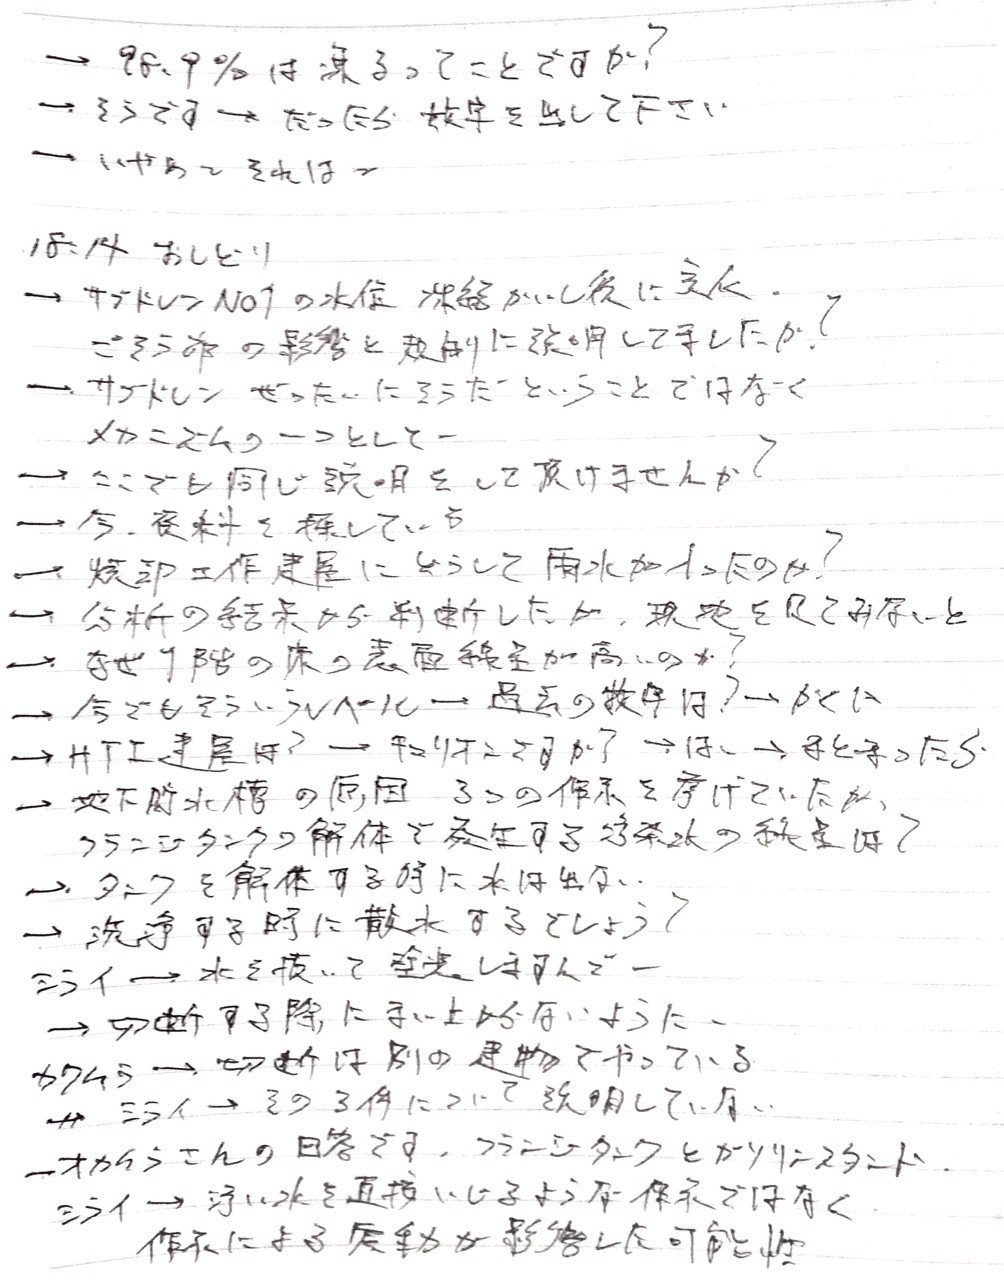 → 98.9%は凍るってことですか?
→ そうです → だったら 数字を出して下さい
→ いやあ〜 それは〜
18:14 おしどり
→ サブドレンNo1の水位 凍結かいし後に変化.
の影響と規制に説明してましたか?
→ サブドレン ぜったいにそうだということではなく
メカニズムの一つとしてー
→ ここでも同じ説明をして頂けませんか?
→ 今、資料を探している
→ 焼却工作建屋にどうして雨水が入ったのか?
→ 分析の結果から判断したが、現地を見てみないと
→ なぜ1階の床の表面線量が高いのか?
→ 今でもそういうレベル → 過去の数字は? → かくに
→ HTI建屋は? → キュリオンですか? → はい → まとまったら
→ 地下貯水槽の原因 3つの作業を挙げていたが、
フランジタンクの解体で発生する汚染水の線量は?
→ タンクを解体する時に水は出ない
→ 洗浄する時に散水するでしょう?
ミライ → 水を抜いて しますんでー
→ 切断する際にまい上がらないように〜
カワムラ → 切断は別の建物でやっている
→ ミライ → その3件について説明していない
オカムラさんの回答です. フランジタンクとガソリンスタンド.
ミライ → 汚い水を直接いじるような作業ではなく
作業による振動が影響した可能性